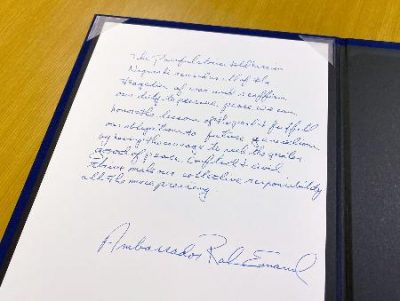 The Peaceful
Nagasaki reminds all of the
tragedies of war and reaffirm
our duty to preserve peace. we can
honor the lessons of the past & fulfill
our obligation to future generations
by having the courage to seek the greater
good of peace. Conflicts &
make our collective responsibility
all the more pressing.
Ambassador Rahm Emanuel